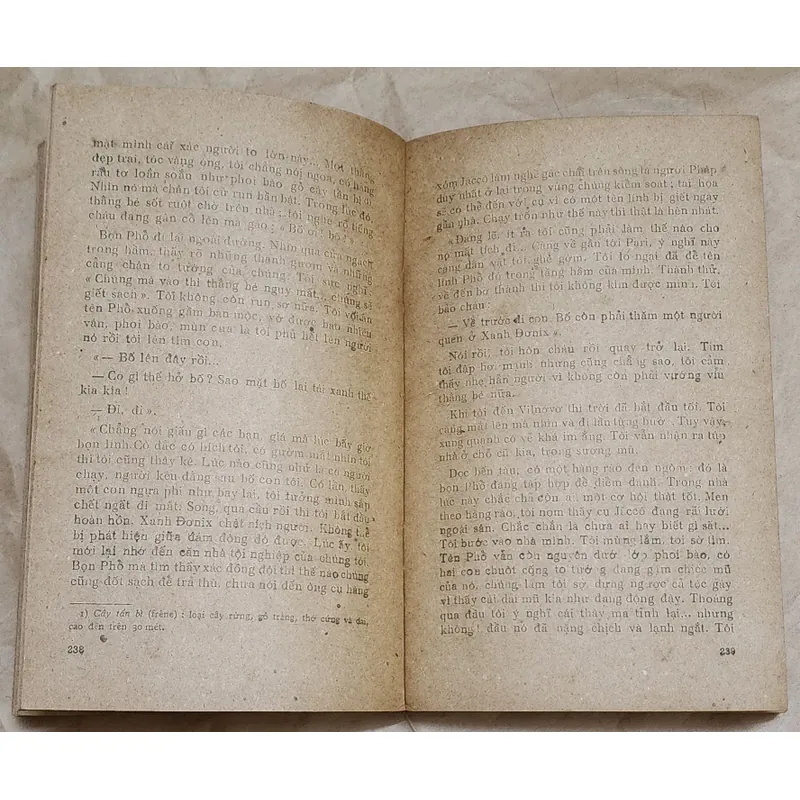 mặt mình cái xác người to lớn này... Một thằng
đẹp trai, tóc vàng óng, tôi chẳng nói ngoa, có hàng
râu tơ loăn soăn như phoi bào gỗ cây tần bì (1).
Nhìn nó mà chân tôi cứ run bần bật. Trong lúc đó,
thằng bé sốt ruột chờ trên nhà, tôi nghe rõ tiếng
cháu đang gân cổ lên mà gào : « Bố ơi! bố! »
Bọn Phổ đi lại ngoài đường. Nhìn qua cửa ngách
trong hầm, thấy rõ những thanh gươm và những
cẳng chân to tướng của chúng. Tôi sực nghĩ :
« Chúng mà vào thì thằng bé nguy mất... chúng sẽ
giết sạch ». Tôi không còn run sợ nữa. Tôi vội ấn
tên Phổ xuống gầm bàn mộc, vớ được bao nhiêu
ván, phoi bào, mùn cưa là tôi phủ hết lên người
nó rồi tôi lên tìm con.
« — Bố lên đây rồi...
— Có gì thế hở bố ? Sao mặt bố lại tái xanh thế
kia kìa !
— Đi, đi ».
« Chẳng nói giấu gì các bạn, giá mà lúc bấy giờ
bọn lính Cô dắc có hích tôi, có gườm mặt nhìn tôi
thì tôi cũng thây kệ. Lúc nào cũng như là có người
chạy, người kêu đằng sau bố con tôi. Có lần, thấy
một con ngựa phi như bay lại, tôi tưởng mình sắp
chết ngất đi mất. Song, qua cầu rồi thì tôi bắt đầu
hoàn hồn. Xanh Đơnix chật ních người. Không thể
bị phát hiện giữa đám đông đó được. Lúc ấy tôi
mới lại nhớ đến căn nhà tội nghiệp của chúng tôi.
Bọn Phổ mà tìm thấy xác đồng đội thì thế nào chúng
cũng đốt sạch để trả thù, chưa nói đến ông cụ hàng
1) Cây tần bì (frêne) : loại cây rừng, gỗ trắng, thớ cứng và dai,
cao đến trên 30 mét.
238
xóm Jaccô làm nghề gác chài trên sông là người Pháp
duy nhất ở lại trong vùng chúng kiểm soát ; tai họa
sẽ có thể đến với cụ vì có một tên lính bị giết ngay
gần nhà. Chạy trốn như thế này thì thật là hèn nhát.
« Đáng lẽ, ít ra tôi cũng phải làm thế nào cho
nó mất tích đi... Càng về gần tới Pari, ý nghĩ này
càng dằn vặt tôi ghê gớm. Tôi lo ngại đã để tên
lính Phổ đó trong tầng hầm của mình. Thành thử,
về đến bờ thành thì tôi không kìm được mình. Tôi
bảo cháu :
— Về trước đi con. Bố còn phải thăm một người
quen ở Xanh Đơnix ».
Nói rồi, tôi hôn cháu rồi quay trở lại. Tim
tôi đập hơi mạnh nhưng cũng chẳng sao, tôi cảm
thấy nhẹ hẳn người vì không còn phải vướng víu
thằng bé nữa.
Khi tôi đến Vilnơvơ thì trời đã bắt đầu tối. Tôi
căng mắt lên mà nhìn và đi lần từng bước. Tuy vậy,
xung quanh có vẻ khá im ắng. Tôi vẫn nhận ra túp
nhà ở chỗ cũ kia, trong sương mù.
Dọc bến tàu, có một hàng rào đen ngòm : đó là
bọn Phổ đang tập hợp để điểm danh. Trong nhà
lúc này chắc chả còn ai, một cơ hội thật tốt. Men
theo hàng rào, tôi nom thấy cụ Jaccô đang rải lưới
ngoài sân. Chắc chắn là chưa ai hay biết gì sất...
Tôi bước vào nhà mình. Tôi mừng lắm, tôi sờ tìm.
Tên Phổ vẫn còn nguyên dưới lớp phoi bào, có
hai con chuột cống to tướng đang gặm chiếc mũ
của nó, chúng làm tôi sợ dựng ngược cả tóc gáy
vì thấy cái dải mũ kia như đang động đậy. Thoáng
qua đầu tôi ý nghĩ cái thây ma tỉnh lại... nhưng
không! đầu nó đã nặng chịch và lạnh ngắt. Tôi
239